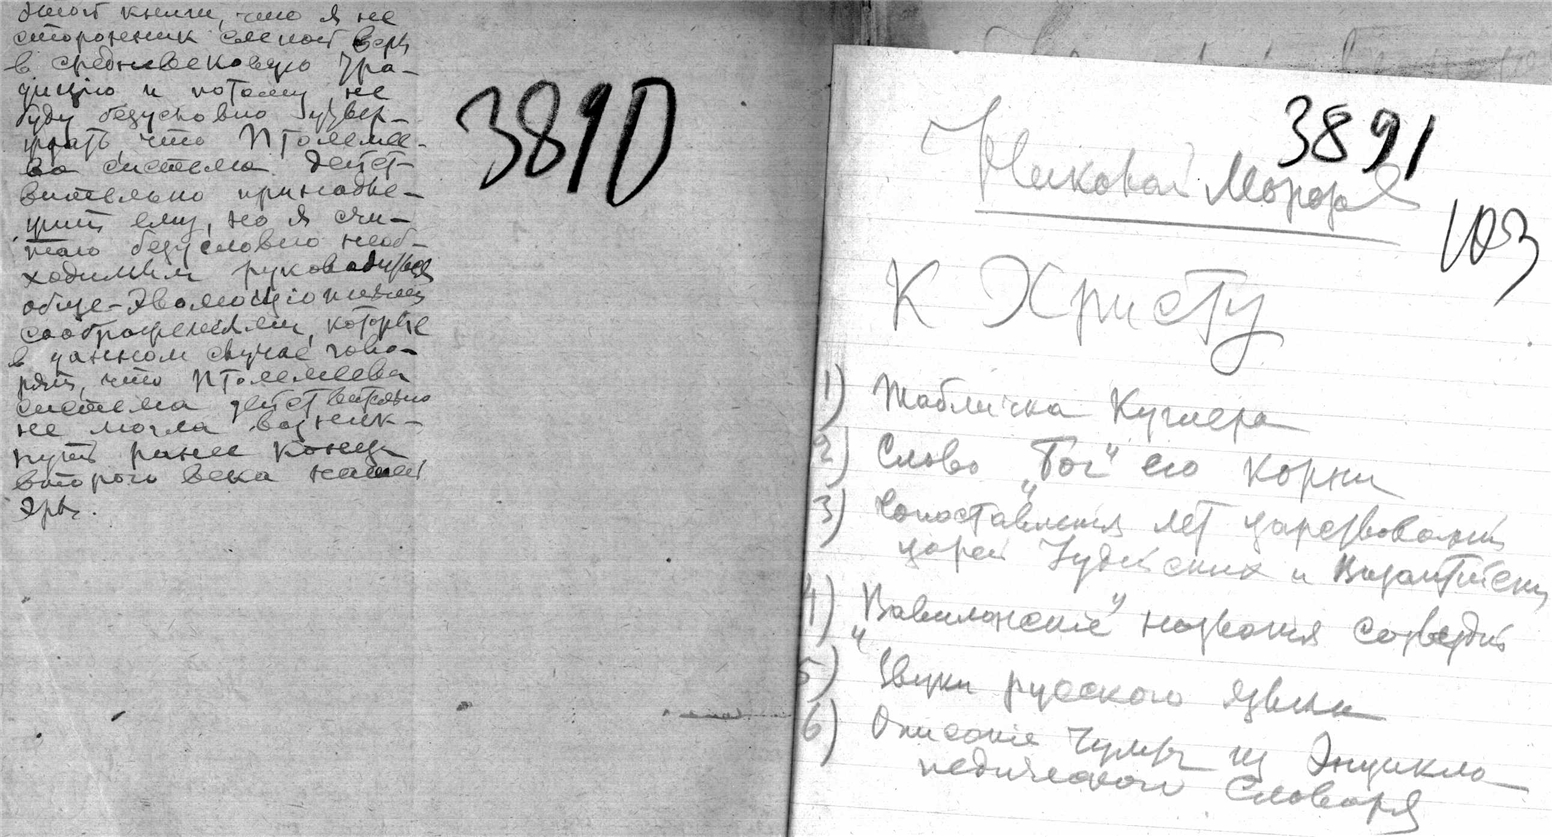 книги, что я не
сторонник слепой веры
в средневековую тра-
дицию и потому не
буду безусловно утвер-
ждать, что Птолемее-
ва система дейст-
вительно принадле-
жит ему, но я счи-
таю безусловно необ-
ходимым руководиться
обще-эволюціонными
соображениями, которые
в данном случае гово-
рят, что Птолемеева
система действительно
не могла возник-
нуть ранее конца
второго века нашей
эры.
3890
3891
Николай Морозов
103
К Христу
1) Табличка Куглера
2) Слово "Бог" его корни
3) Сопоставления лет царствований
царей Іудейских и Византийских
4) "Вавилонскіе" названия созвездий
5) Звуки русского языка
6) Описание Чумы из Энцикло
педического Словаря